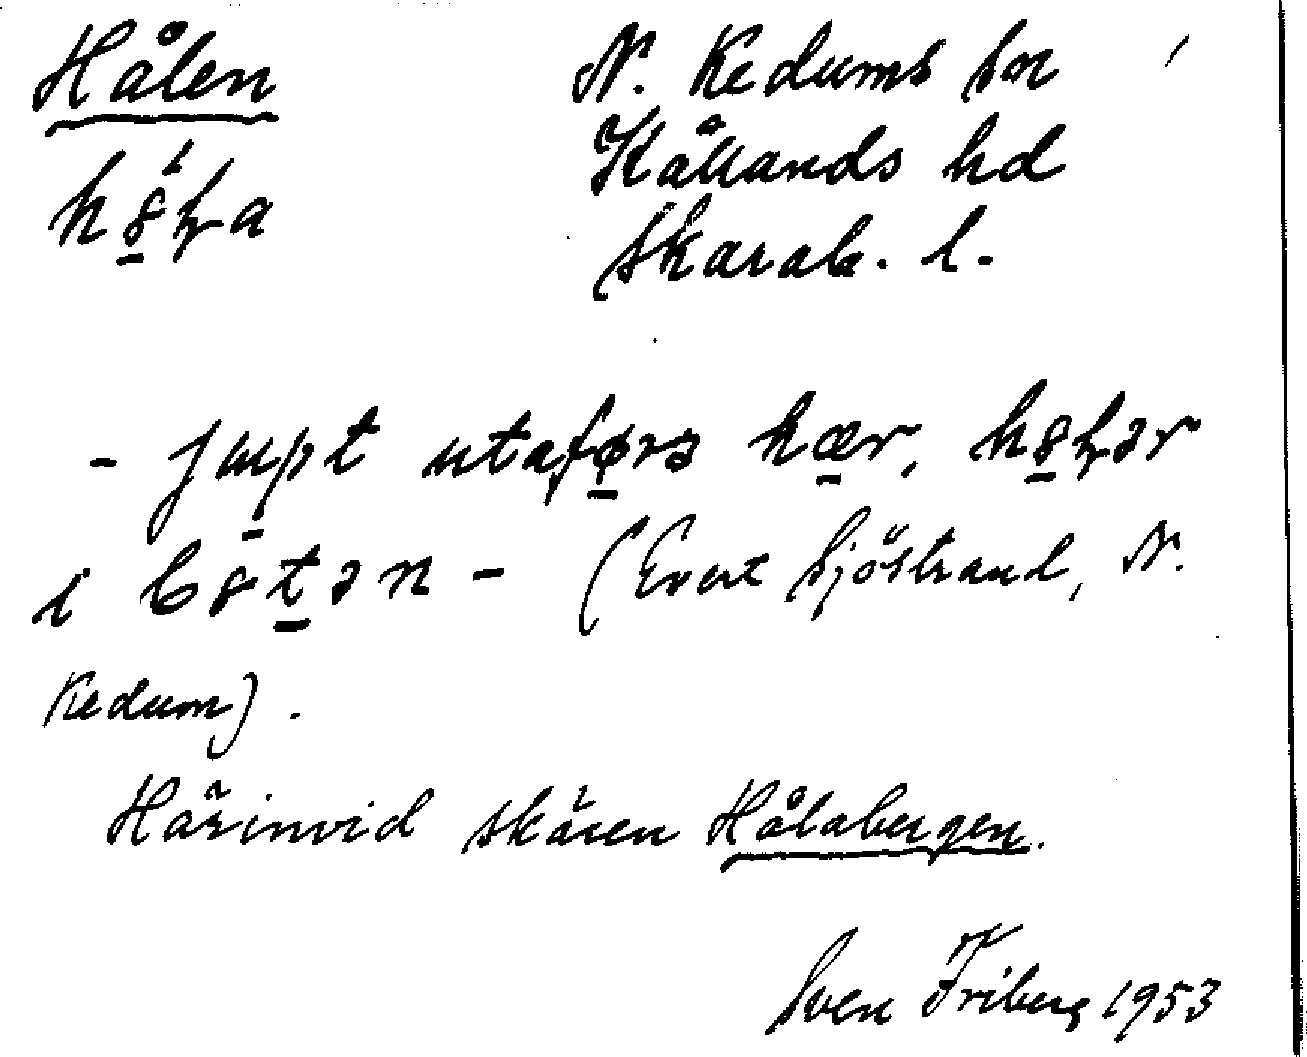 Hålen
N. Kedums sn
Kållands hd
Skarab. l.
- jupt utaførə hær,
i
- (Evert Sjöstrand, N.
Kedum).
Härinvid skären Hålabergen.
Sven Friberg 1953